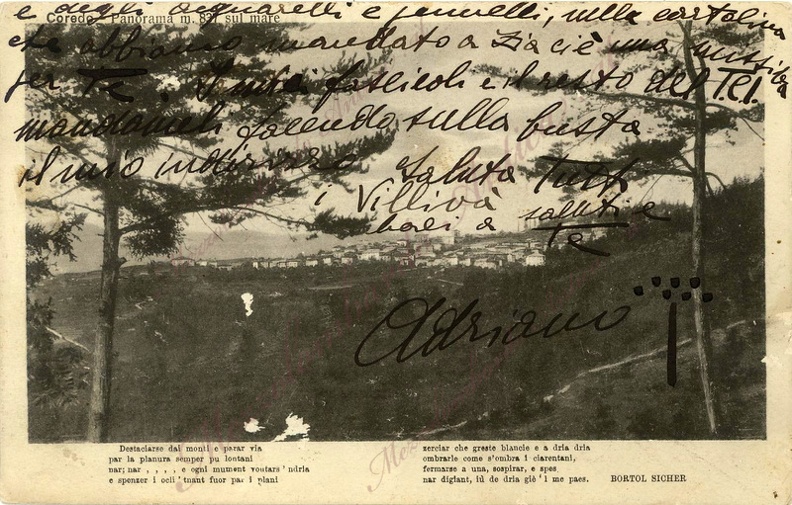 Coredo - Panorama m. 831 sul mare
e degli acquarelli e pennelli, nella cartolina
che abbiamo mandato a Zia c'è una missiva
per Te. I miei fascicoli e il resto del T.C.I.
mandameli facendo sulla busta
il mio indirizzo Saluta Tutti
i Villivà
baci a saluti e
Te
Adriano
Destaciarse dai monti e parar via
par la planura semper pu lontani
nar; nar , , , , e ogni mument voutars 'ndria
e spenzer i ocli 'tnant fuor par i piani
zerciar che greste blancie e a dria dria
ombrarle come s'ombra i ciarentani,
fermarse a una, sospirar, e spes
nar digiant, iù de dria giè 'l me paes. BORTOL SICHER